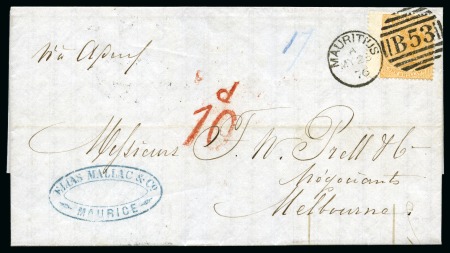 17
MAURITIUS
A
76
B53
d
10
Messieurs F. W. Prell & Co
Négociants
Melbourne
ELIAS MALLAC & Co.
MAURICE